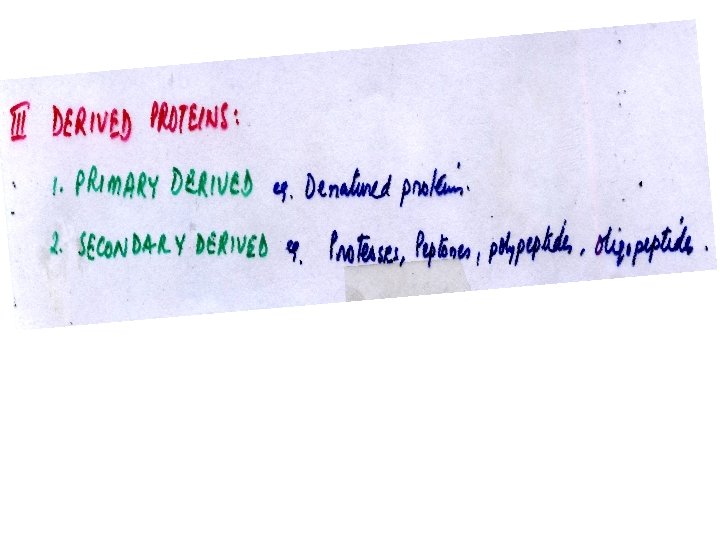 III DERIVED PROTEINS:
1. PRIMARY DERIVED eg. Denatured protein.
2. SECONDARY DERIVED eg. Proteases, Peptones, polypeptides, oligopeptides.